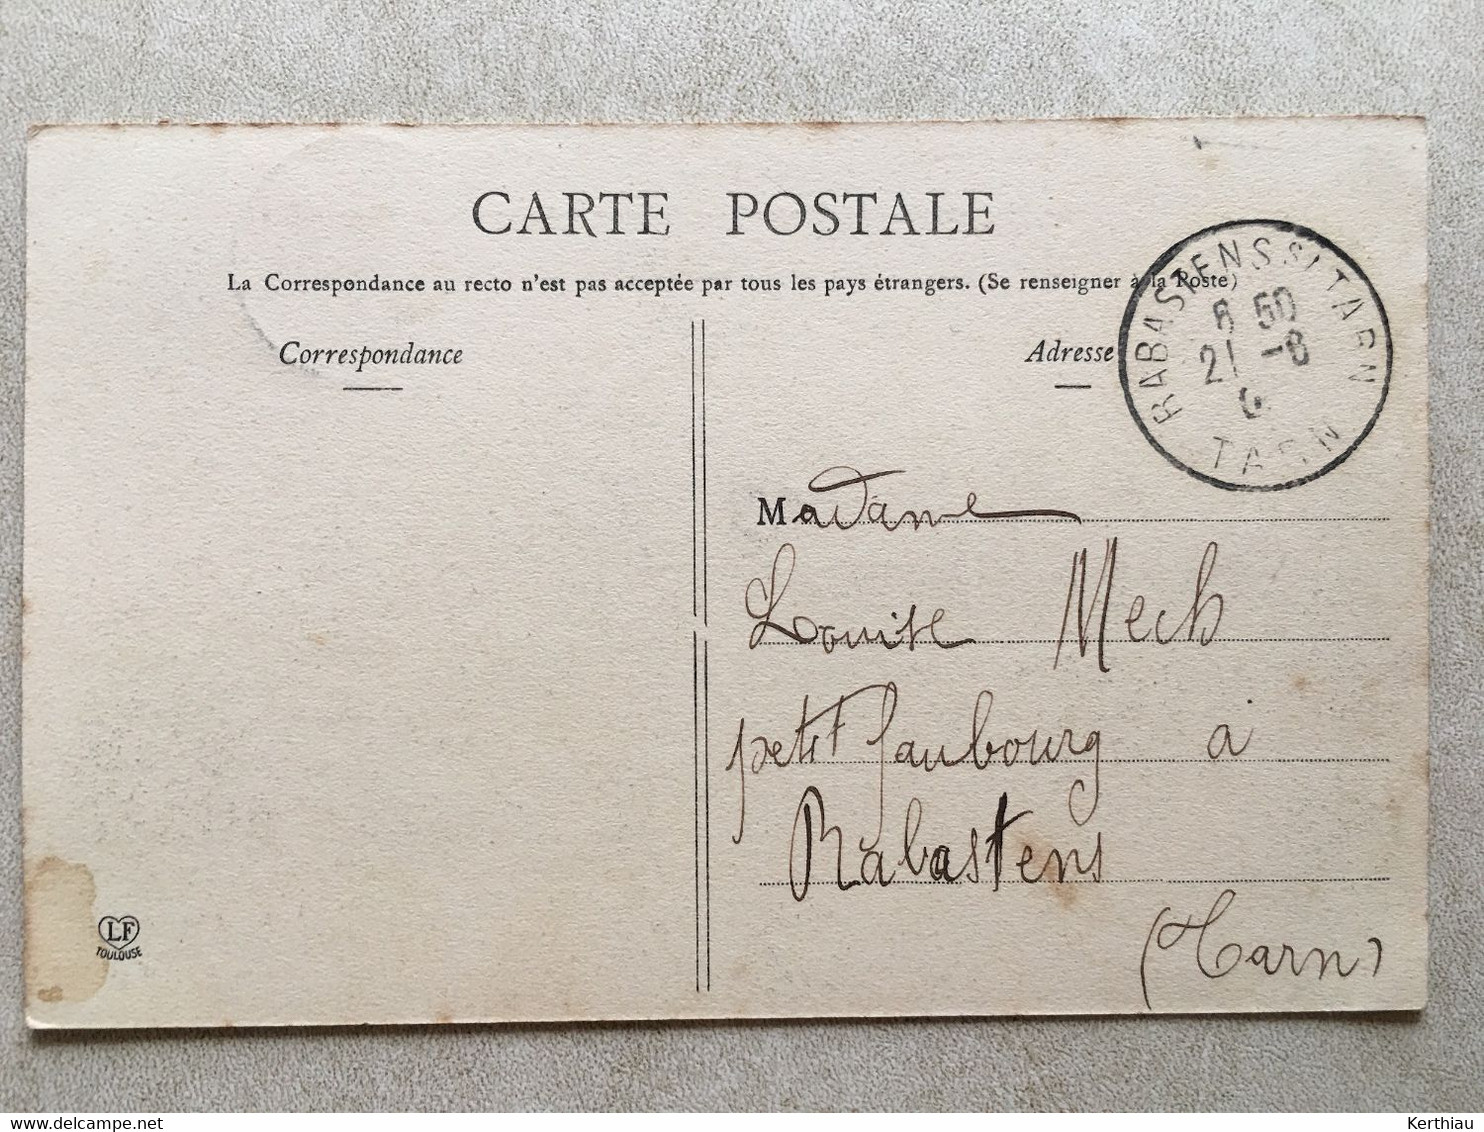 CARTE POSTALE
La Correspondance au recto n'est pas acceptée par tous les pays étrangers. (Se renseigner à la Poste)
Correspondance
Adresse
RABASTENS S/ TARN
21 -8
TARN
Madame
Louise Mech
petit faubourg à
Rabastens
(Tarn)
LF
TOULOUSE
Kerthiau